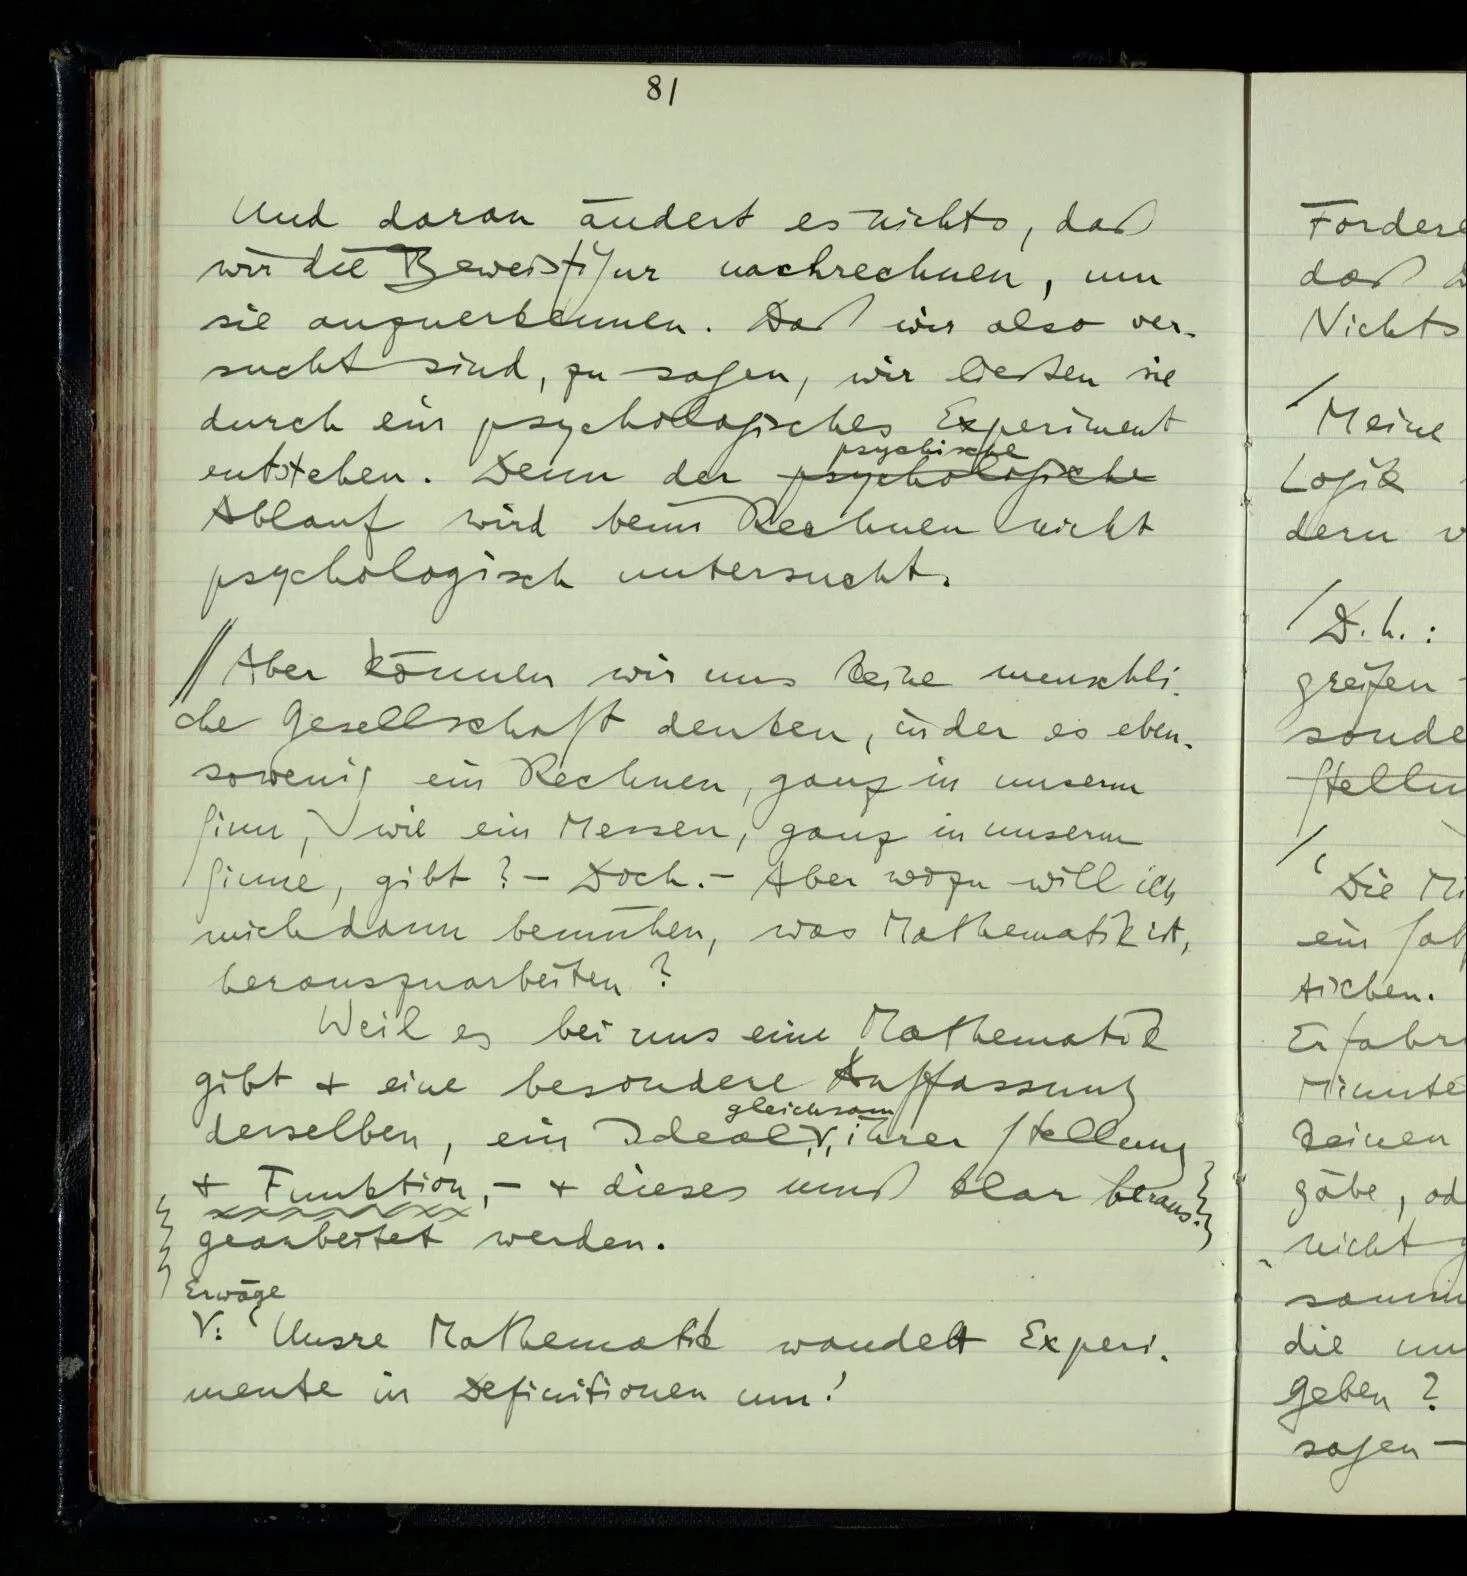 81
Und daran ändert es nichts, daß
wir die Beweisfigur nachrechnen, um
sie anzuerkennen. Daß wir also ver-
sucht sind, zu sagen, wir ließen sie
durch ein psychologisches Experiment
psychische
entstehen. Denn der psychologische
Ablauf wird beim Rechnen nicht
psychologisch untersucht.
// Aber können wir uns keine menschli-
che Gesellschaft denken, in der es eben-
sowenig ein Rechnen, ganz in unserm
Sinn, wie ein Messen, ganz in unserm
Sinne, gibt? – Doch. – Aber wozu will ich
mich dann bemühen, was Mathematik ist,
herauszuarbeiten?
Weil es bei uns eine Mathematik
gibt & eine besondere Auffassung
gleichsam
derselben, ein Ideal ihrer Stellung
& Funktion, – & dieses muß klar heraus-
gearbeitet werden.
Erwäge
V: 'Unsre Mathematik wandelt Experi-
mente in Definitionen um!'
Fordere
daß
Nichts
/ Meine
Logik
dern
/ D.h.:
greifen
sonde
Stellu
/ 'Die Mi
ein
Erfahr
Minute
keinen
gäbe, od
nicht g
die
geben?
sagen –